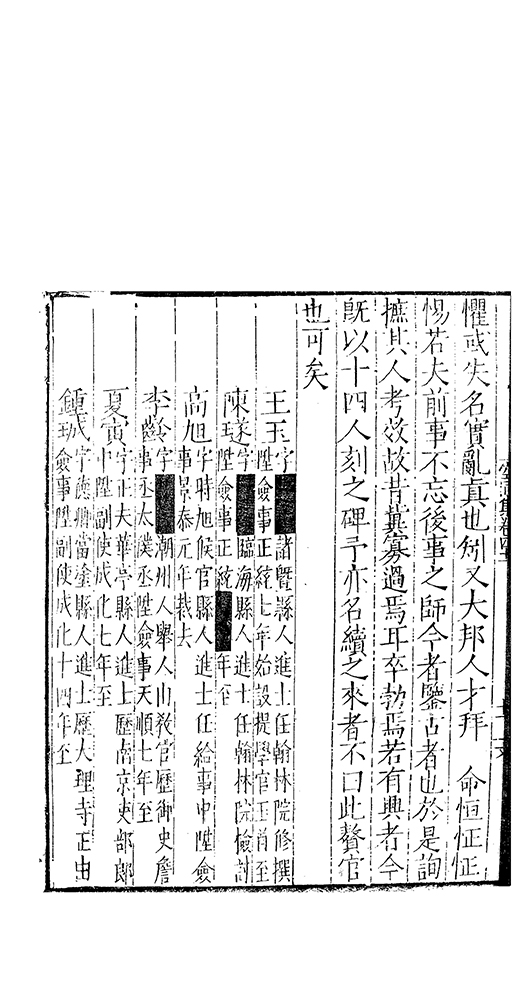 懼或失名實亂眞也矧又大邦人才拜 命恒怔怔
惕若夫前事不忘後事之師今者鑒古者也於是詢
摭其人考效故昔冀寡過焉耳卒勃焉若有興者今
既以十四人刻之碑予亦名續之來者不曰此贅官
也可矣
王玉字 諸暨縣人進士任翰林院修撰
陞僉事正統七年始設提學官玉首至
陳璲字 臨海縣人進士任翰林院檢討
陞僉事正統 年至
高旭字時旭候官縣人進士任給事中陞僉
事景泰元年裁去
李齡字 潮州人舉人由教官歷御史詹
事丞太僕丞陞僉事天順七年至
夏寅字正夫華亭縣人進士歷南京吏部郎
中陞副使成化七年至
鍾珹字德卿當塗縣人進士歷大理寺正由
僉事陞副使成化十四年至